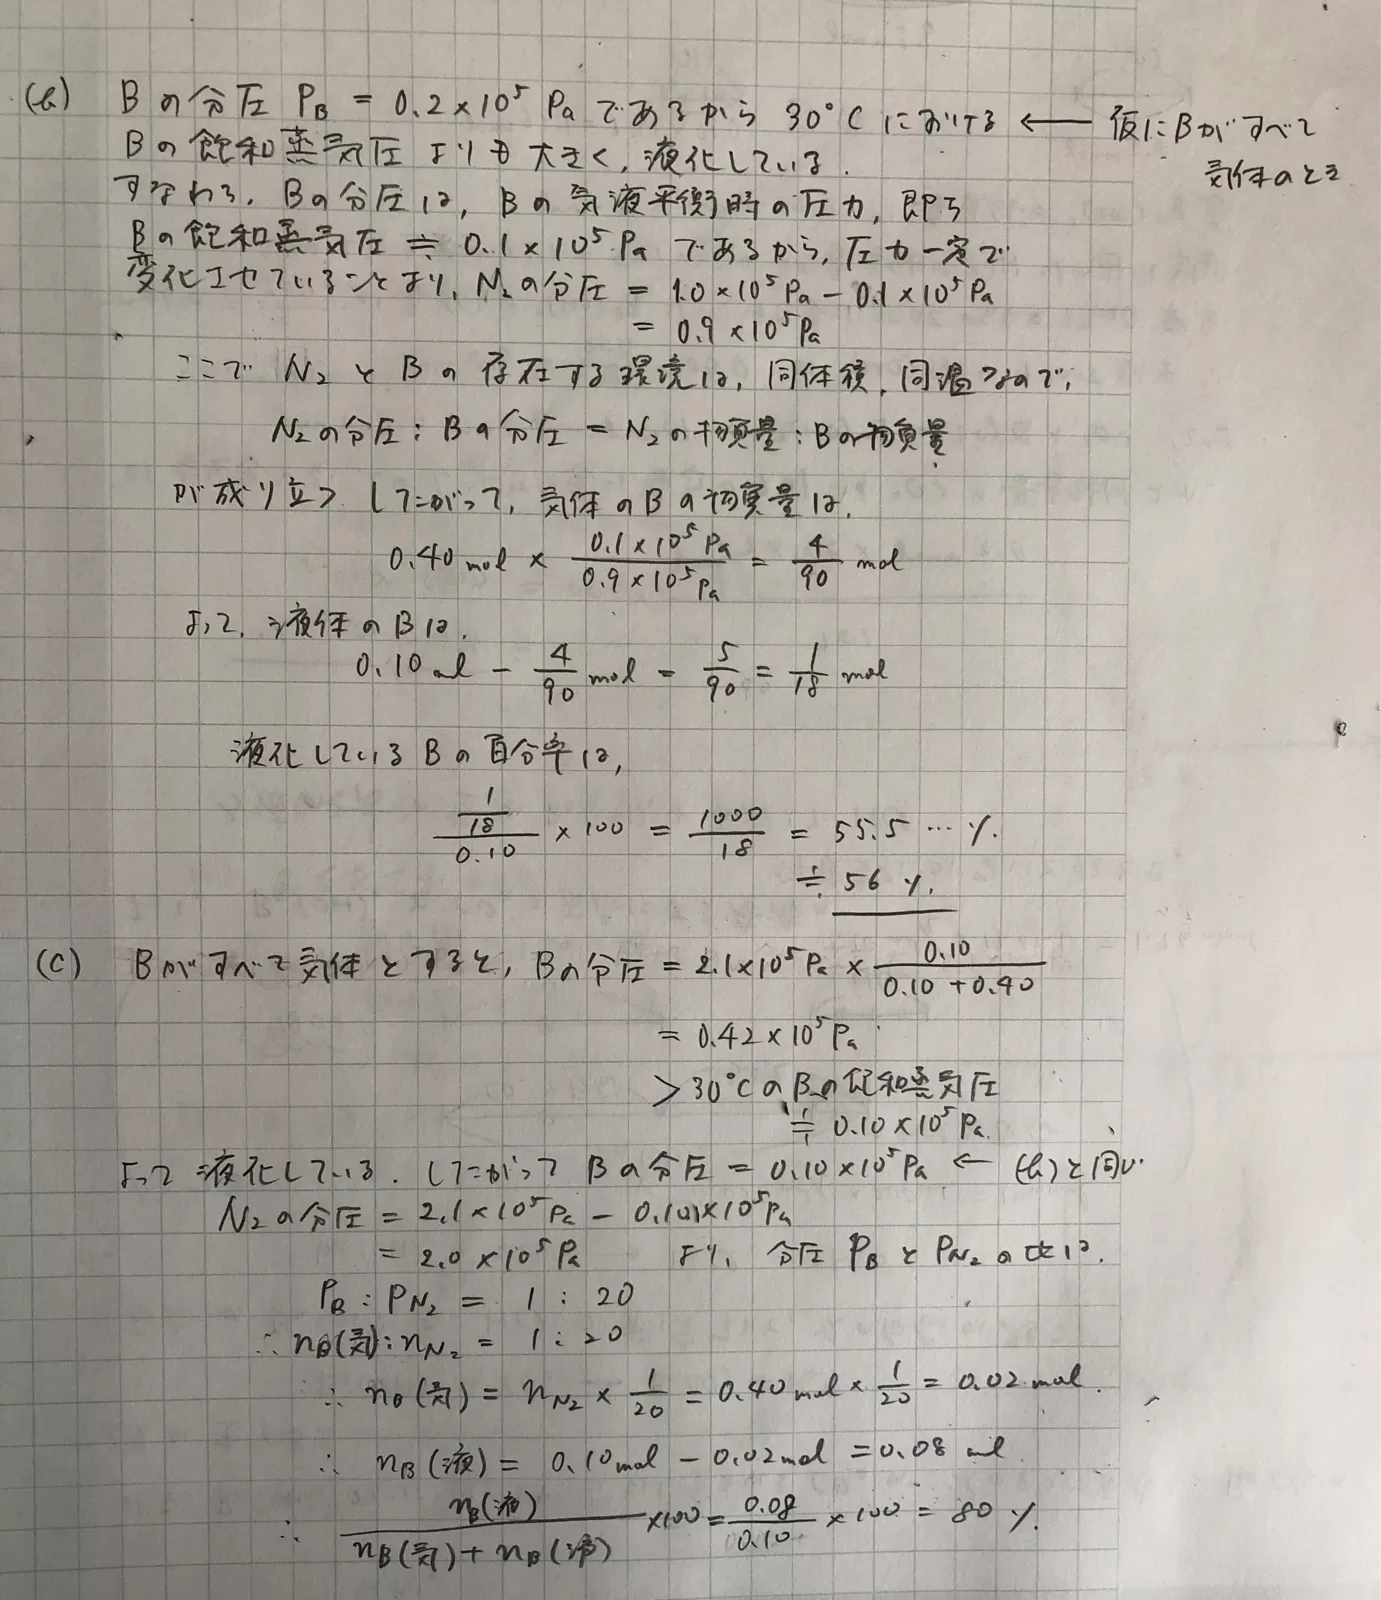 (b) Bの分圧 PB = 0.2×10⁵ Pa であるから 30°C における ← 仮にBがすべて
Bの飽和蒸気圧よりも大きく,液化している. 気体のとき
すなわち,Bの分圧は,Bの気液平衡時の圧力,即ち
Bの飽和蒸気圧 ≒ 0.1×10⁵ Pa であるから,圧力一定で
変化させていることより,N₂の分圧 = 1.0×10⁵Pa − 0.1×10⁵Pa
= 0.9×10⁵Pa
ここで N₂ と B の存在する環境は,同体積,同温なので,
N₂の分圧:Bの分圧 = N₂の物質量:Bの物質量
が成り立つ したがって,気体のBの物質量は,
0.40 mol × 0.1×10⁵ Pa / 0.9×10⁵ Pa = 4/90 mol
よって,液体のBは,
0.10 mol − 4/90 mol = 5/90 = 1/18 mol
液化しているBの百分率は,
(1/18)/0.10 × 100 = 1000/18 = 55.5 … %.
≒ 56 %.
(C) Bがすべて気体とすると,Bの分圧 = 2.1×10⁵ Pa × 0.10/(0.10+0.40)
= 0.42×10⁵ Pa
> 30°CのBの飽和蒸気圧
≒ 0.10×10⁵ Pa
よって液化している.したがってBの分圧 = 0.10×10⁵ Pa ← (b)と同じ.
N₂の分圧 = 2.1×10⁵ Pa − 0.10×10⁵ Pa
= 2.0×10⁵ Pa より,分圧 PB と PN₂ の比は,
PB : PN₂ = 1 : 20
∴ nB(気):nN₂ = 1 : 20
∴ nB(気) = nN₂ × 1/20 = 0.40 mol × 1/20 = 0.02 mol.
∴ nB(液) = 0.10 mol − 0.02 mol = 0.08 mol
∴ nB(液)/(nB(気)+nB(液)) ×100 = 0.08/0.10 × 100 = 80 %.